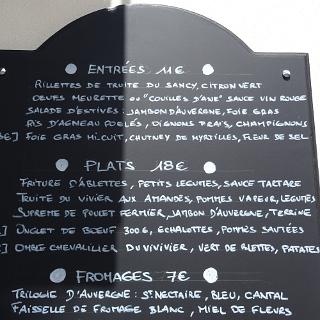 ENTRÉES 11€
RILLETTES DE TRUITE DU SANCY, CITRON VERT
OEUFS MEURETTE OU "COUILLES D'ANE" SAUCE VIN ROUGE
SALADE D'ESTIVES : JAMBON D'AUVERGNE, FOIE GRAS
RIS D'AGNEAU POELÉS, OIGNONS FRAIS, CHAMPIGNONS
€] FOIE GRAS MI.CUIT, CHUTNEY DE MYRTILLES, FLEUR DE SEL
PLATS 18€
FRITURE D'ABLETTES, PETITS LEGUMES, SAUCE TARTARE
TRUITE DU VIVIER AUX AMANDES, POMMES VAPEUR, LEGUMES
SUPREME DE POULET FERMIER, JAMBON D'AUVERGNE, TERRINE
] ONGLET DE BOEUF 300G, ECHALOTTES, POMMES SAUTÉES
] OMBRE CHEVALLIER DU VIVIVIER, VERT DE BLETTES, PATATES
FROMAGES 7€
TRILOGIE D'AUVERGNE : ST NECTAIRE, BLEU, CANTAL
FAISSELLE DE FROMAGE BLANC, MIEL DE FLEURS